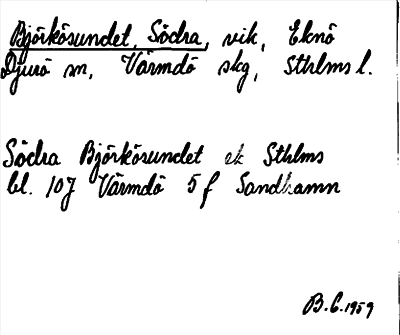 Björkösundet, Södra, vik, Eknö
Djurö sn, Värmdö skg, Sthlms l.
Södra Björkösundet ek Sthlms
bl. 107 Värmdö 5 f Sandhamn
B.C. 1959